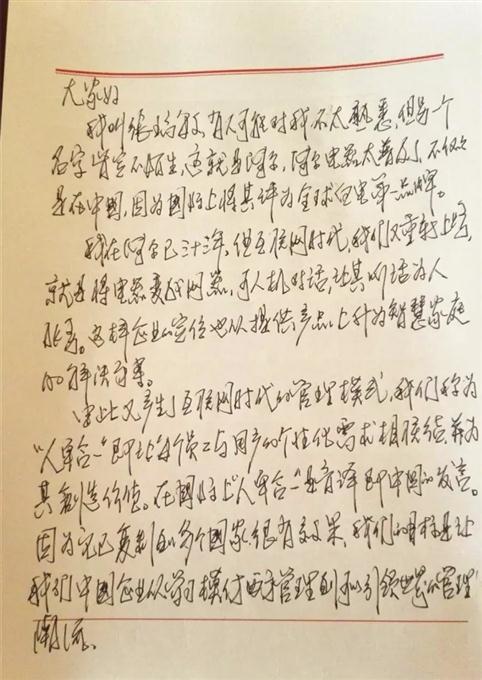 大家好
我叫张瑞敏，有人可能对我不太熟悉，但另一个
名字肯定不陌生，这就是海尔，海尔电器太普及了，不仅仅
是在中国，因为国际上将其评为全球白电第一品牌。
我在海尔已三十三年，但互联网时代，我们又重新上路，
就是将电器变成网器，可人机对话，让其听话为人
服务。这样企业定位也从提供产品上升为智慧家庭
的解决方案。
由此又产生了互联网时代的管理模式，我们称为
“人单合一”即让每个员工与用户的个性化需求相联结，并为
其创造价值。在国际上“人单合一”是音译即中国的发音。
因为它已复制到多个国家，很有效果，我们的目标是让
我们中国企业从学习模仿西方管理到引领世界的管理
潮流、